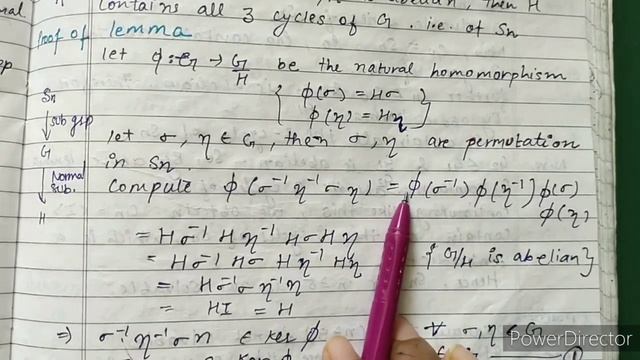 Contains all 3 cycles of G. i.e. of Sn
Proof of lemma
let ϕ: G → G/H be the natural homomorphism
{ ϕ(σ) = Hσ
ϕ(η) = Hη }
Sn
↓ sub grp
G
↓ Normal sub.
H
let σ, η ∈ G, then σ, η are permutation
in Sn.
Compute ϕ(σ⁻¹ η⁻¹ σ η) = ϕ(σ⁻¹) ϕ(η⁻¹) ϕ(σ)
ϕ(η)
= Hσ⁻¹ Hη⁻¹ Hσ Hη
= Hσ⁻¹ Hσ Hη⁻¹ Hη { G/H is abelian}
= Hσ⁻¹σ η⁻¹η
= HI = H
⇒ σ⁻¹η⁻¹ση ∈ ker ϕ ∀ σ, η ∈ G
PowerDirector